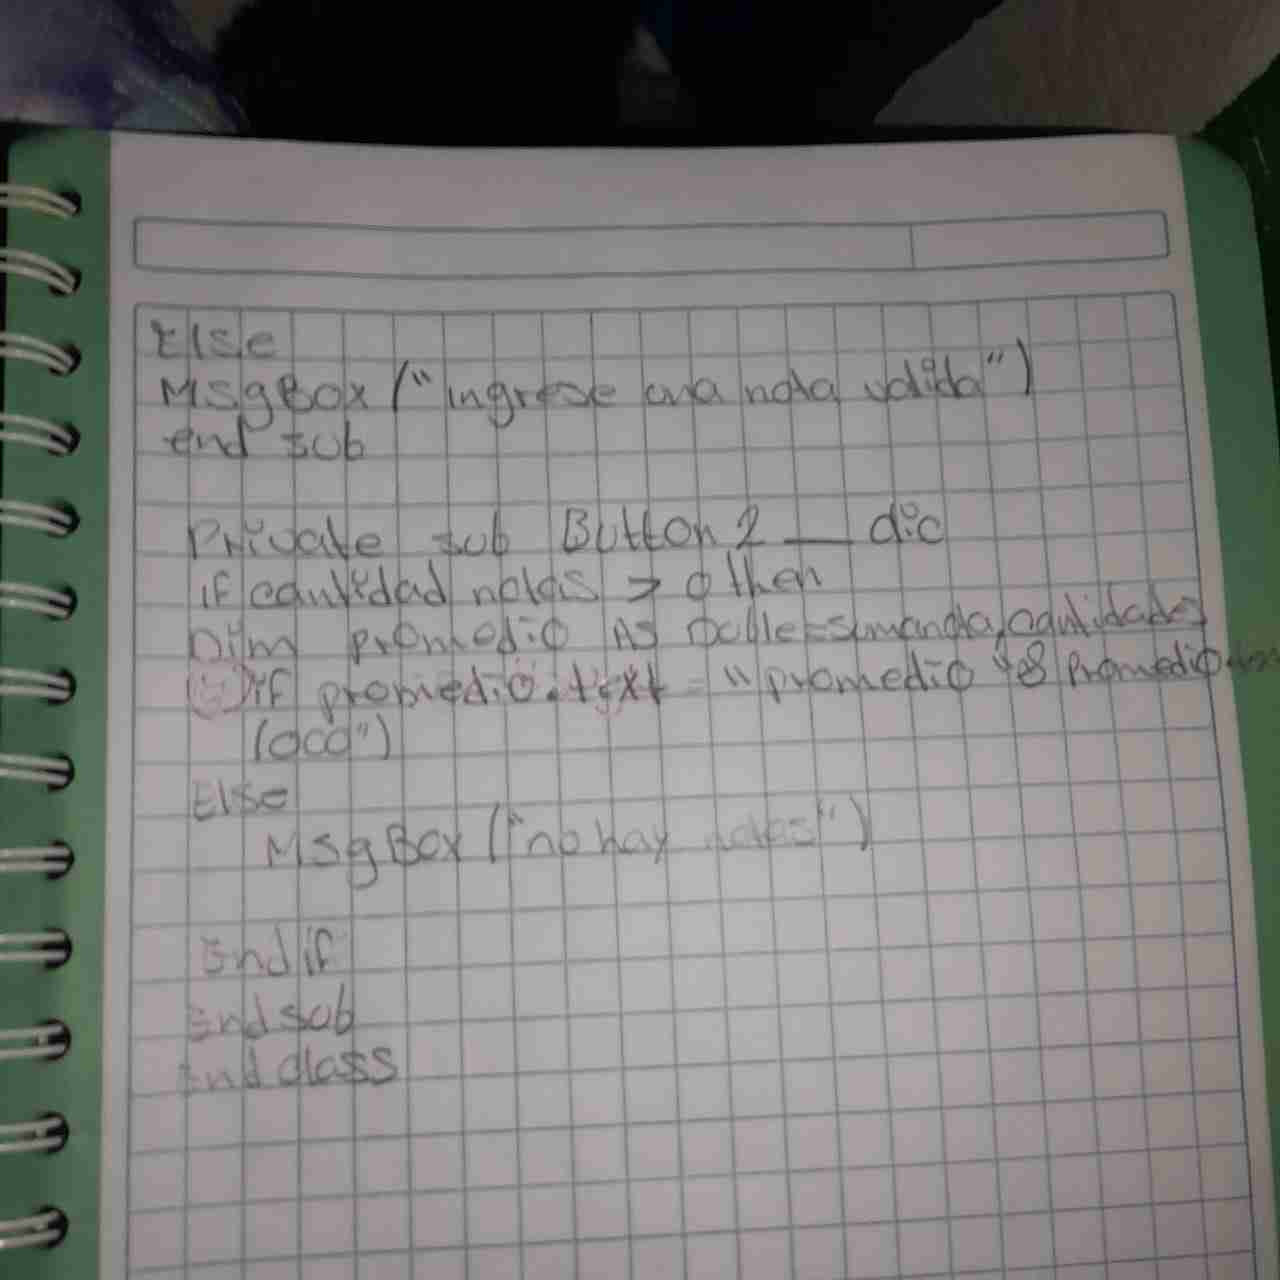 Else
MsgBox ("ingrese una nota valida")
end sub
Private sub Button 2 __ clic
if cantidad notas > 0 then
Dim promedio As
if promedio.text = "promedio" & promedio
Else
MsgBox ("no hay notas")
End if
End sub
End class